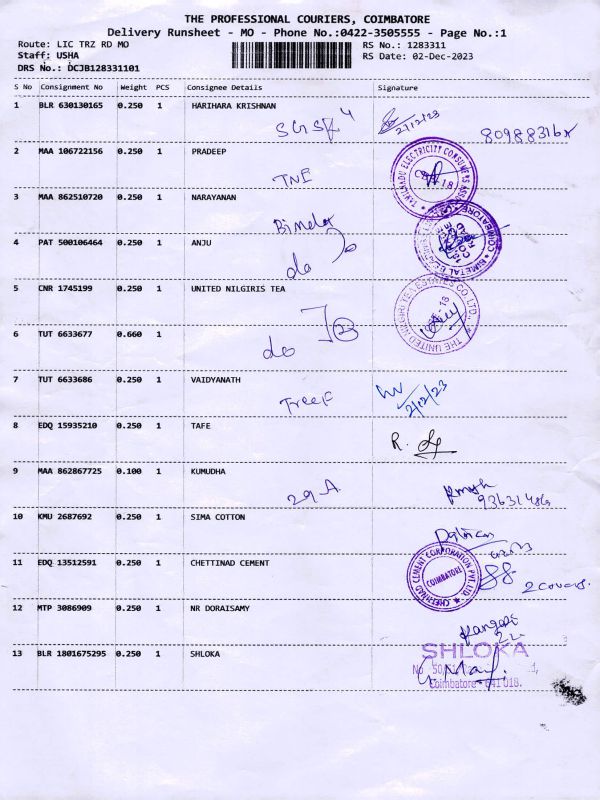 THE PROFESSIONAL COURIERS, COIMBATORE
Delivery Runsheet - MO - Phone No.:0422-3505555 - Page No.:1
Route: LIC TRZ RD MO RS No.: 1283311
Staff: USHA RS Date: 02-Dec-2023
DRS No.: DCJB128331101
S No Consignment No Weight PCS Consignee Details Signature
1 BLR 630130165 0.250 1 HARIHARA KRISHNAN
2/12/23
2 MAA 106722156 0.250 1 PRADEEP
TNE
TAMILNADU ELECTRICITY CONSUMERS
3 MAA 862510720 0.250 1 NARAYANAN
Bimetal
COIMBATORE
BIMETAL
4 PAT 500106464 0.250 1 ANJU
do
5 CNR 1745199 0.250 1 UNITED NILGIRIS TEA
THE UNITED NILGIRI TEA ESTATES CO. LTD.,
6 TUT 6633677 0.660 1
do
7 TUT 6633686 0.250 1 VAIDYANATH
Treef
2/12/23
8 EDQ 15935210 0.250 1 TAFE
R.
9 MAA 862867725 0.100 1 KUMUDHA
29 A
10 KMU 2687692 0.250 1 SIMA COTTON
11 EDQ 13512591 0.250 1 CHETTINAD CEMENT
CHETTINAD CEMENT CORPORATION PVT. LTD.
COIMBATORE
2 covers.
12 MTP 3086909 0.250 1 NR DORAISAMY
13 BLR 1801675295 0.250 1 SHLOKA
SHLOKA
Coimbatore - 641 018.